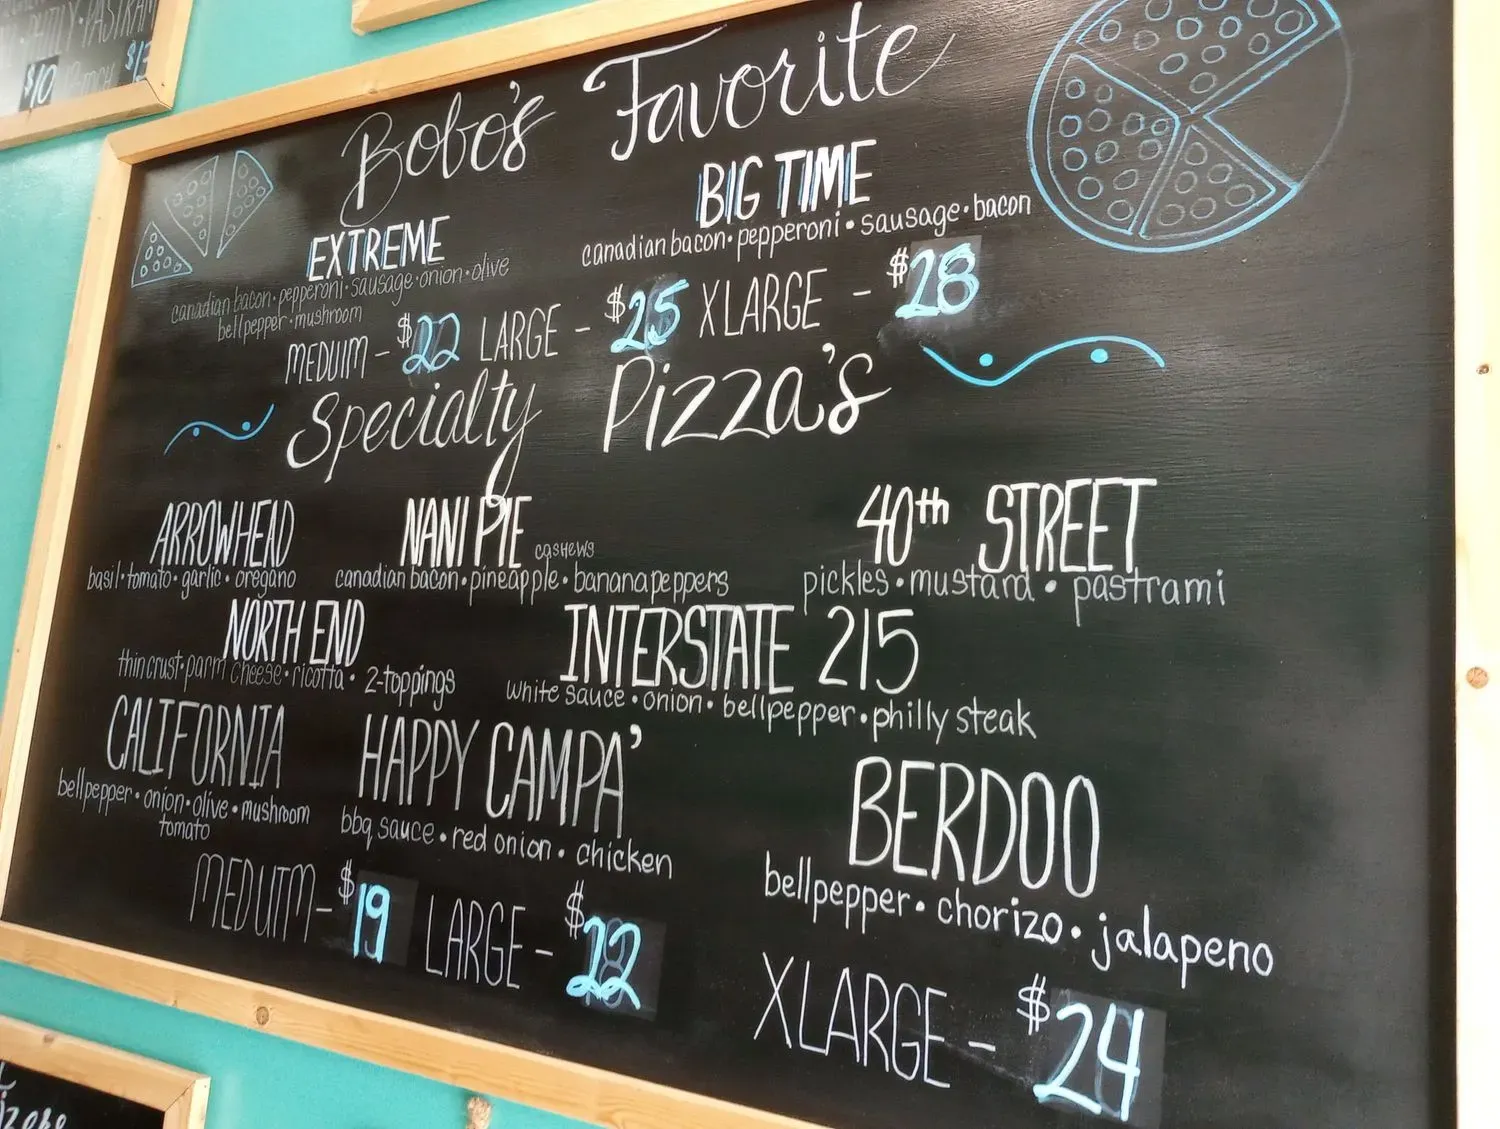 PASTRAM
$10
Bobo's Favorite
EXTREME
canadian bacon · pepperoni · sausage · onion · olive
bellpepper · mushroom
BIG TIME
canadian bacon · pepperoni · sausage · bacon
MEDUIM - $22 LARGE - $25 XLARGE - $28
Specialty Pizza's
ARROWHEAD
basil · tomato · garlic · oregano
NANI PIE
cashews
canadian bacon · pineapple · banana peppers
40th STREET
pickles · mustard · pastrami
NORTH END
thin crust · parm cheese · ricotta · 2-toppings
INTERSTATE 215
white sauce · onion · bellpepper · philly steak
CALIFORNIA
bellpepper · onion · olive · mushroom
tomato
HAPPY CAMPA'
bbq sauce · red onion · chicken
BERDOO
bellpepper · chorizo · jalapeno
MEDUIM - $19 LARGE - $22 XLARGE - $24